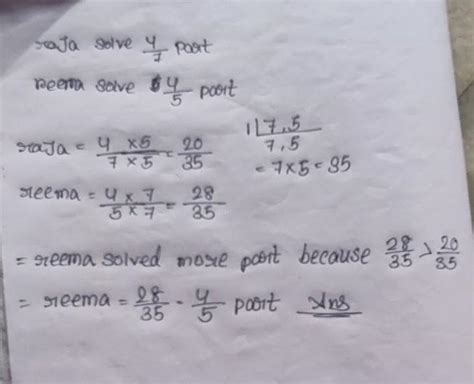 raja solve 4/7 part
reema solve 4/5 part
raja = 4 × 5 / 7 × 5 = 20/35
1 | 7, 5
7, 5
= 7 × 5 = 35
reema = 4 × 7 / 5 × 7 = 28/35
= reema solved more part because 28/35 > 20/35
= reema = 28/35 - 4/5 part Ans